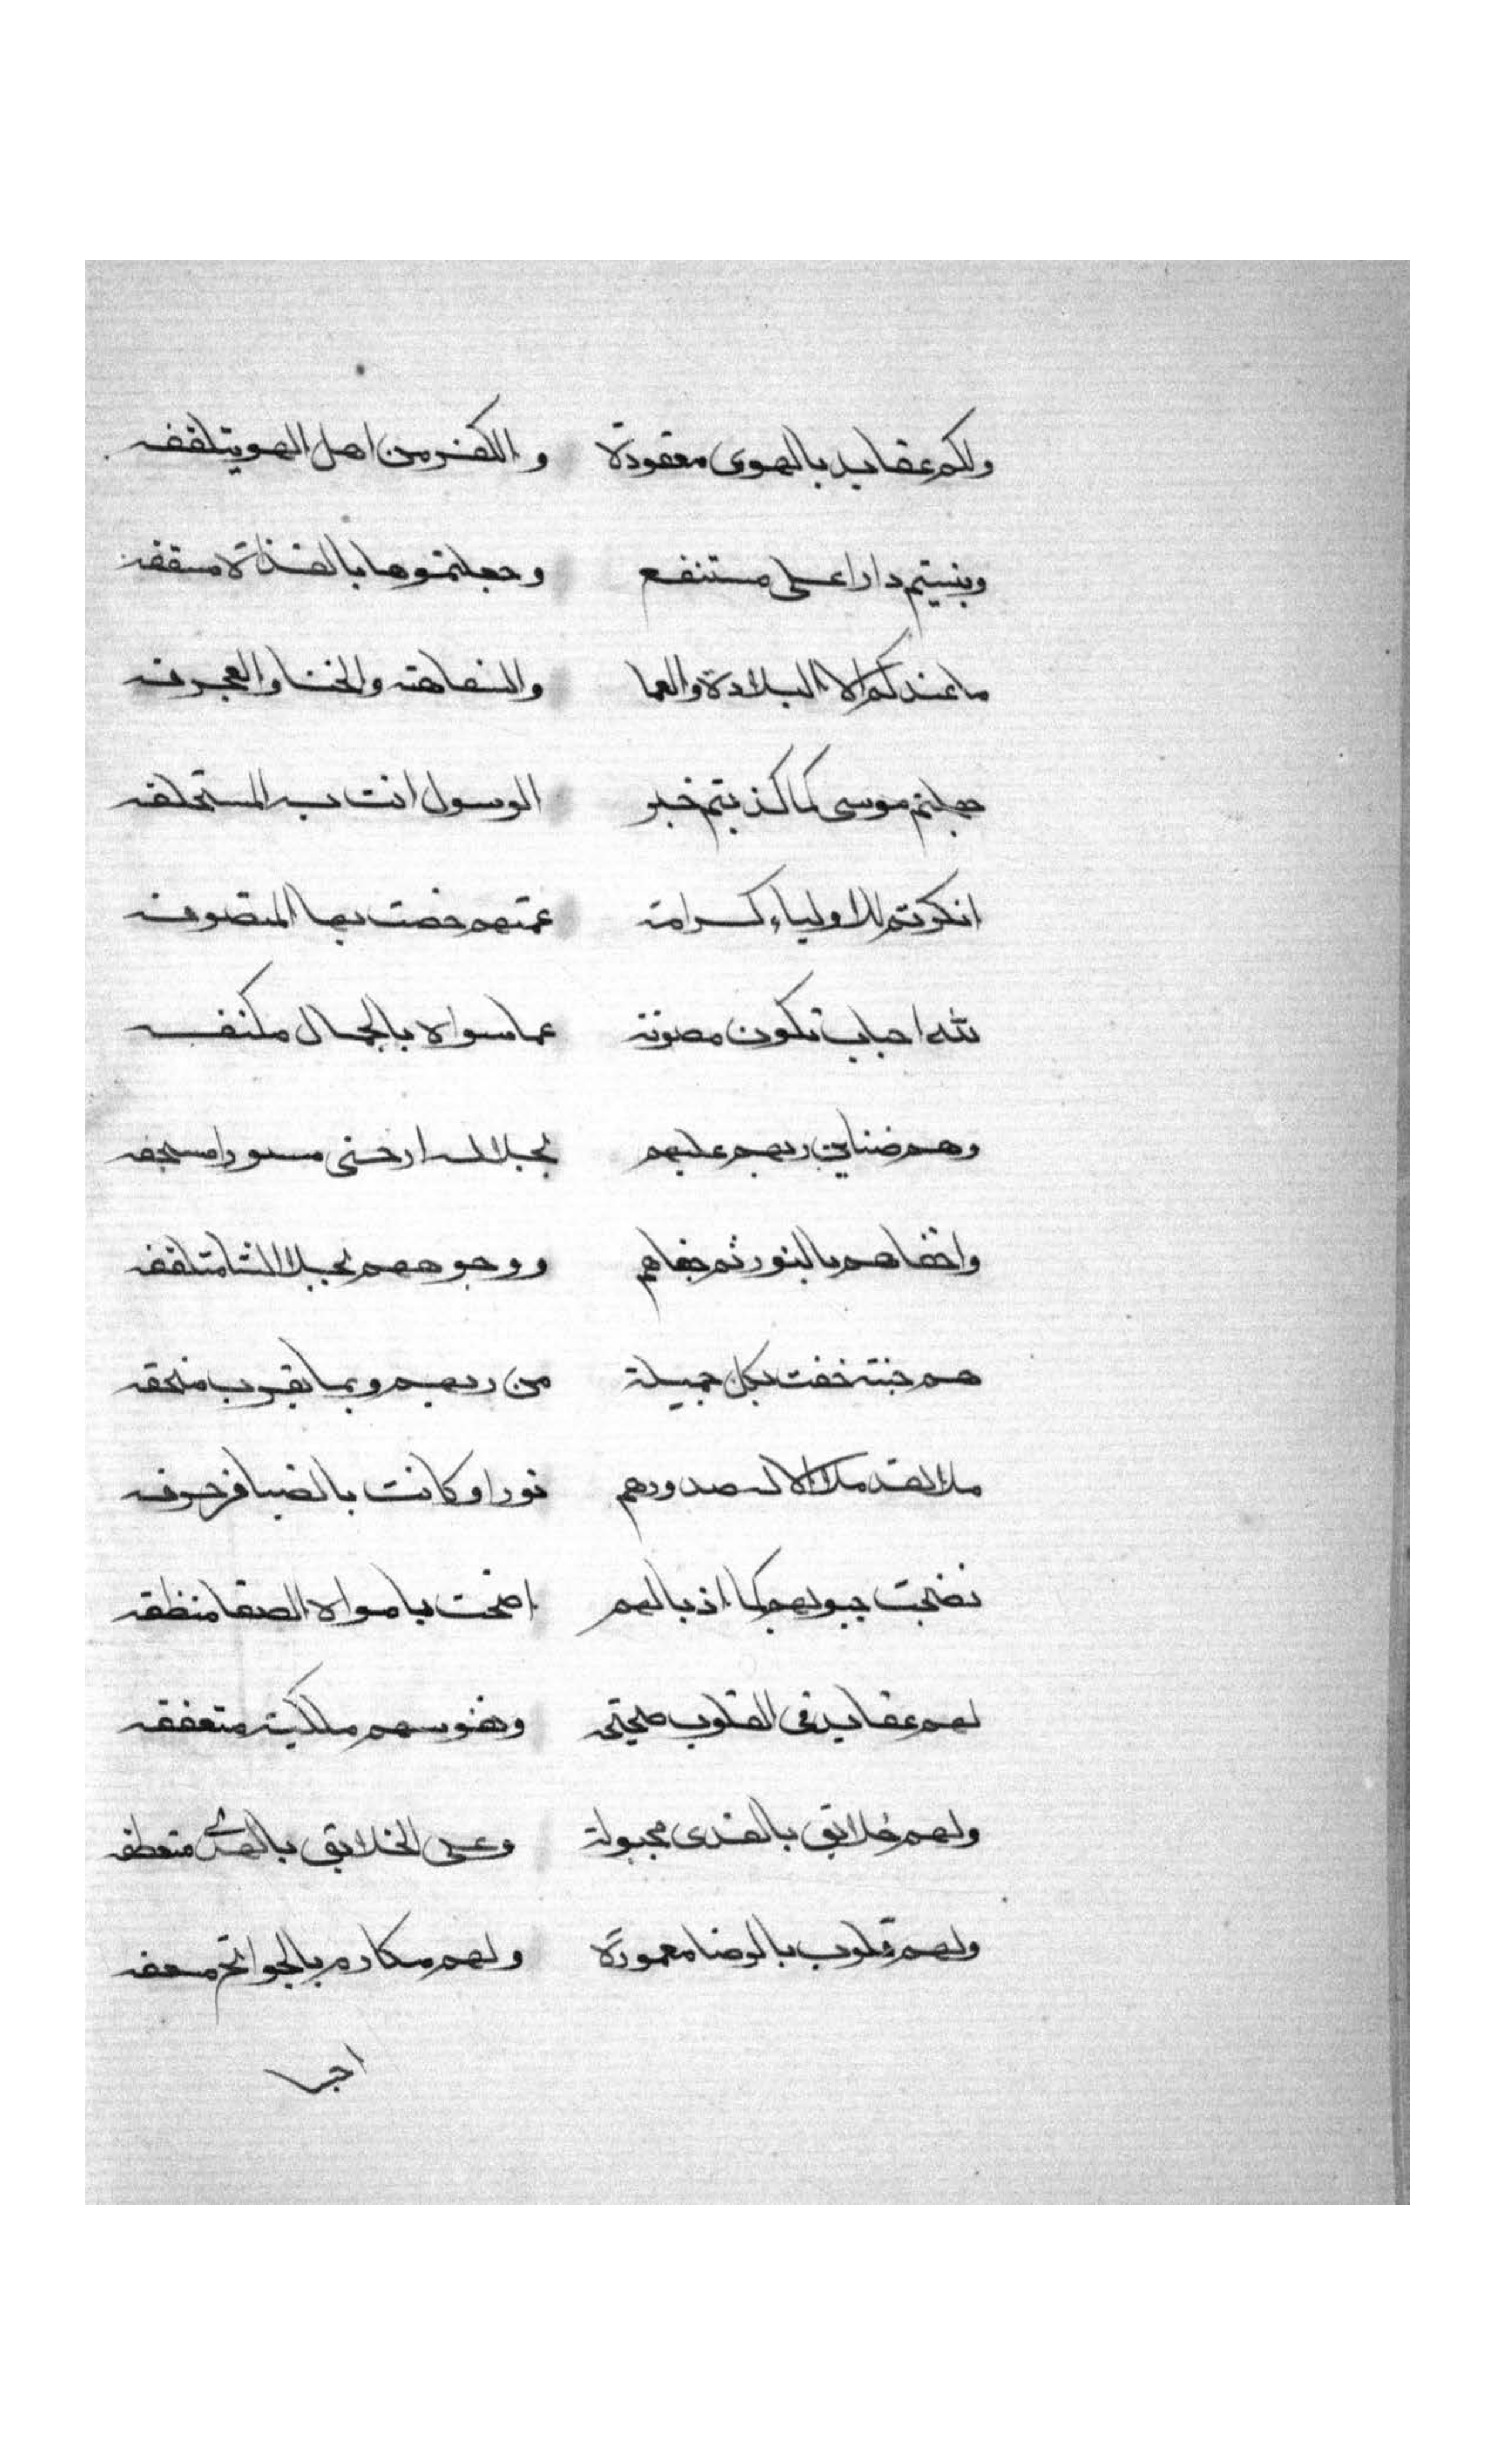 ولكم عقايد بالهوى معقودة والكفر من اهل الهوى يتلقفه
وبنيتم دارا على مستنقع وجعلتموها بالقذاة مسقفه
ما عندكم الا البلادة والعما والسفاهة والخنا والعجرفه
جهلتم موسى كما كذبتم خبر الرسول انت به المستحلفه
انكرتم للاولياء كرامة عمتهم خصت بها المتصوفه
لله احباب تكون مصونة عما سواه بالجمال مكنفه
وهم ضناين ربهم عليهم بجلاله ارخى ستورا مسجفه
واخفاهم بالنور ثم خفاهم ووجوههم بجلا الثنا متلففه
هم جنة حفت بكل جميلة من ربهم وبما يقرب ملحقه
ملا لقد ملا الاله صدورهم نورا وكانت بالضيا مزخرفه
نضجت جيوبهم كما اذيالهم اضحت بامواه الصفا منظفه
لهم عقايد في القلوب صحيحة ونفوسهم ملكية متعففه
ولهم خلايق بالندى مجبولة وعلى الخلايق بالهدى متعطفه
ولهم قلوب بالرضا معمورة ولهم مكارم بالجوائح